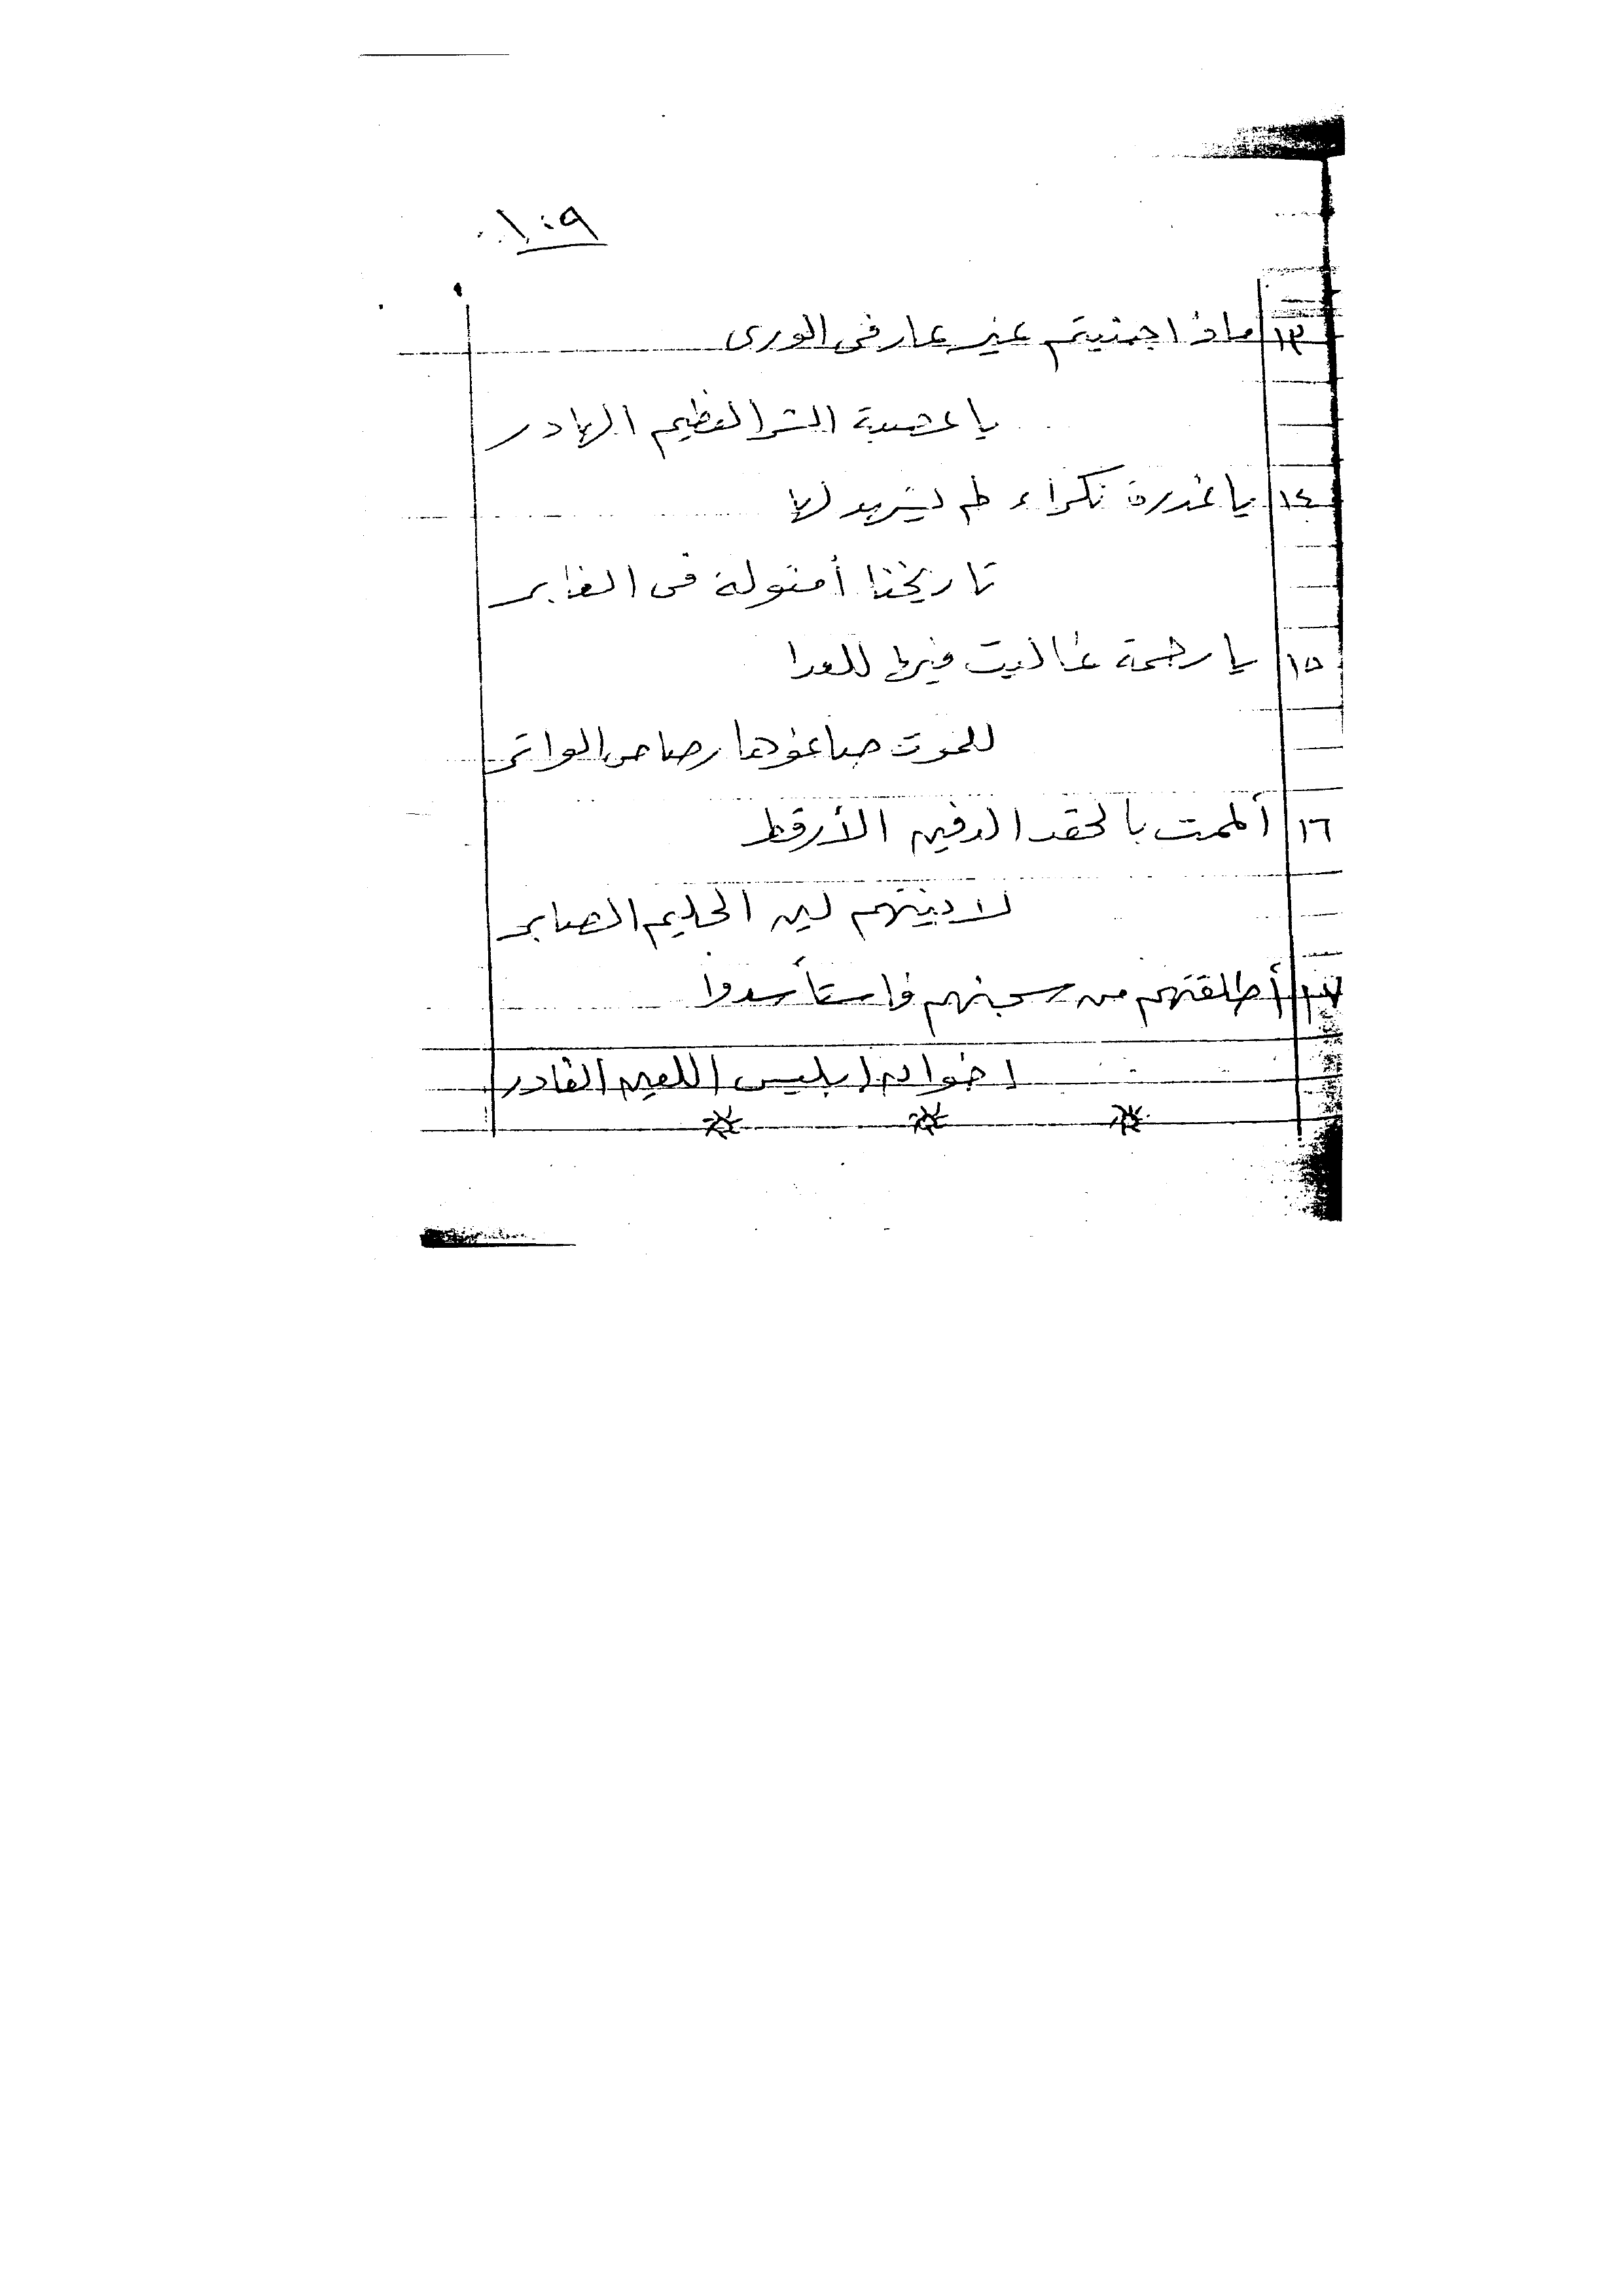 ١٠٩
١٣ ماذا جنيتم غير عار فى الورى
يا عصبة الشر العظيم الهادر
١٤ يا غدرة نكراء لم يشهد لها
تاريخنا أمثولة فى الغابر
١٥ يا رحمة غاليت فيها للعدا
للموت صاغوها رصاص الواتر
١٦ ألممت بالحقد الدفين الأرقط
لاينتهم لين الحليم الصابر
١٧ أطلقتهم من سجنهم فاستأسدوا
اخوان إبليس اللعين الغادر